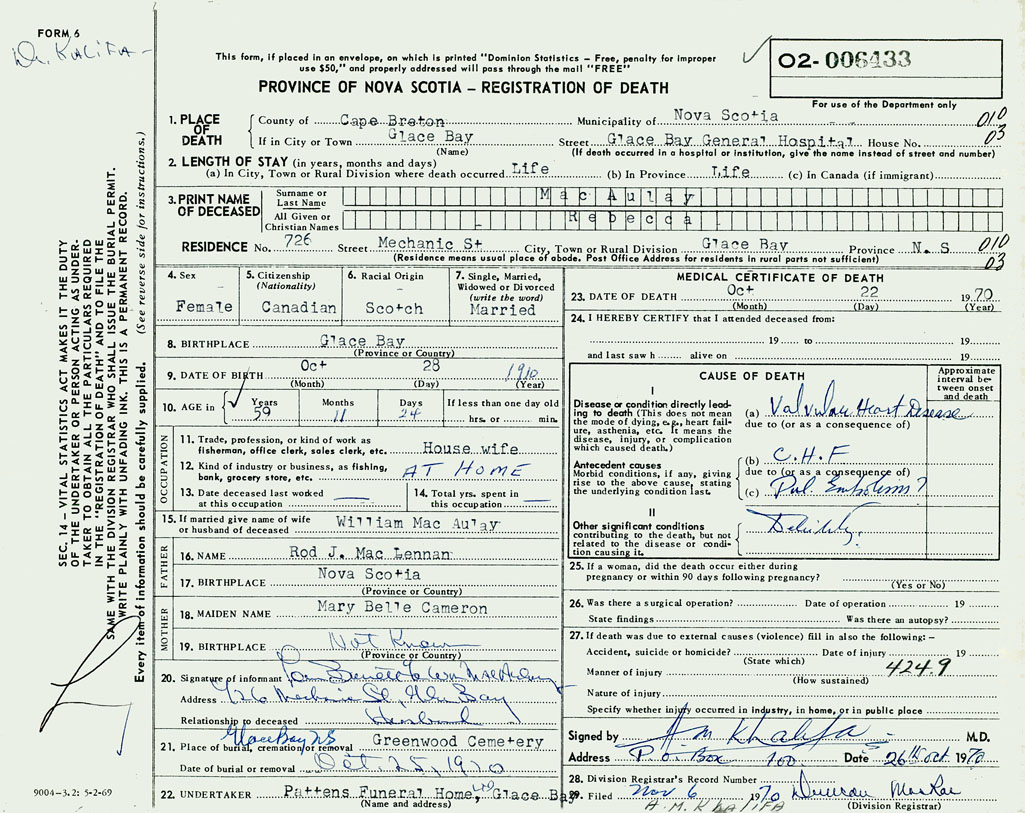 FORM 6
Dr. KALIFA -
This form, if placed in an envelope, on which is printed "Dominion Statistics – Free, penalty for improper
use $50," and properly addressed will pass through the mail "FREE"
PROVINCE OF NOVA SCOTIA – REGISTRATION OF DEATH
02-006433
For use of the Department only
1. PLACE OF DEATH
County of Cape Breton Municipality of Nova Scotia 010
If in City or Town Glace Bay Street Glace Bay General Hospital House No. 03
(Name) (If death occurred in a hospital or institution, give the name instead of street and number)
2. LENGTH OF STAY (in years, months and days)
(a) In City, Town or Rural Division where death occurred Life (b) In Province Life (c) In Canada (if immigrant)
3. PRINT NAME OF DECEASED
Surname or Last Name Mac Aulay
All Given or Christian Names Rebecca
RESIDENCE No. 726 Street Mechanic St City, Town or Rural Division Glace Bay Province N. S. 010
(Residence means usual place of abode. Post Office Address for residents in rural parts not sufficient) 03
4. Sex
Female
5. Citizenship
(Nationality)
Canadian
6. Racial Origin
Scotch
7. Single, Married,
Widowed or Divorced
(write the word)
Married
8. BIRTHPLACE Glace Bay
(Province or Country)
9. DATE OF BIRTH Oct 28 1910
(Month) (Day) (Year)
10. AGE in Years Months Days If less than one day old
59 11 24 hrs. or min.
OCCUPATION
11. Trade, profession, or kind of work as
fisherman, office clerk, sales clerk, etc. House wife
12. Kind of industry or business, as fishing,
bank, grocery store, etc. AT HOME
13. Date deceased last worked
at this occupation
14. Total yrs. spent in
this occupation
15. If married give name of wife
or husband of deceased William Mac Aulay
FATHER
16. NAME Rod J. Mac Lennan
17. BIRTHPLACE Nova Scotia
(Province or Country)
MOTHER
18. MAIDEN NAME Mary Belle Cameron
19. BIRTHPLACE Not Known
(Province or Country)
20. Signature of informant
Address 726 Mechanic St, Glace Bay
Relationship to deceased Husband
21. Place of burial, cremation or removal Glace Bay NS Greenwood Cemetery
Date of burial or removal Oct. 25, 1970
22. UNDERTAKER Pattens Funeral Home, Glace Bay
(Name and address)
MEDICAL CERTIFICATE OF DEATH
23. DATE OF DEATH Oct 22 1970
(Month) (Day) (Year)
24. I HEREBY CERTIFY that I attended deceased from:
19 to 19
and last saw h alive on 19
CAUSE OF DEATH
Approximate
interval be-
tween onset
and death
I
Disease or condition directly lead-
ing to death (This does not mean
the mode of dying, e.g., heart fail-
ure, asthenia, etc. It means the
disease, injury, or complication
which caused death.)
(a) Valvular Heart Disease
due to (or as a consequence of)
Antecedent causes
Morbid conditions, if any, giving
rise to the above cause, stating
the underlying condition last.
(b) C.H.F
due to (or as a consequence of)
(c) Pul. Embolism?
II
Other significant conditions
contributing to the death, but not
related to the disease or condi-
tion causing it.
Debility.
25. If a woman, did the death occur either during
pregnancy or within 90 days following pregnancy?
(Yes or No)
26. Was there a surgical operation? Date of operation 19
State findings Was there an autopsy?
27. If death was due to external causes (violence) fill in also the following: –
Accident, suicide or homicide? Date of injury 19
(State which)
Manner of injury 424.9
(How sustained)
Nature of injury
Specify whether injury occurred in industry, in home, or in public place
Signed by A M Khalifa M.D.
Address P.O. Box 100. Date 26th Oct 1970
28. Division Registrar's Record Number
29. Filed Nov 6 1970 Duncan MacRae
A.M. KHALIFA (Division Registrar)
SEC. 14 – VITAL STATISTICS ACT MAKES IT THE DUTY
OF THE UNDERTAKER OR PERSON ACTING AS UNDER-
TAKER TO OBTAIN ALL THE PARTICULARS REQUIRED
IN THE "REGISTRATION OF DEATH" AND TO FILE THE
SAME WITH THE DIVISION REGISTRAR WHO SHALL ISSUE THE BURIAL PERMIT.
WRITE PLAINLY WITH UNFADING INK. THIS IS A PERMANENT RECORD.
Every item of information should be carefully supplied. (See reverse side for instructions.)
9004-3.2: 5-2-69